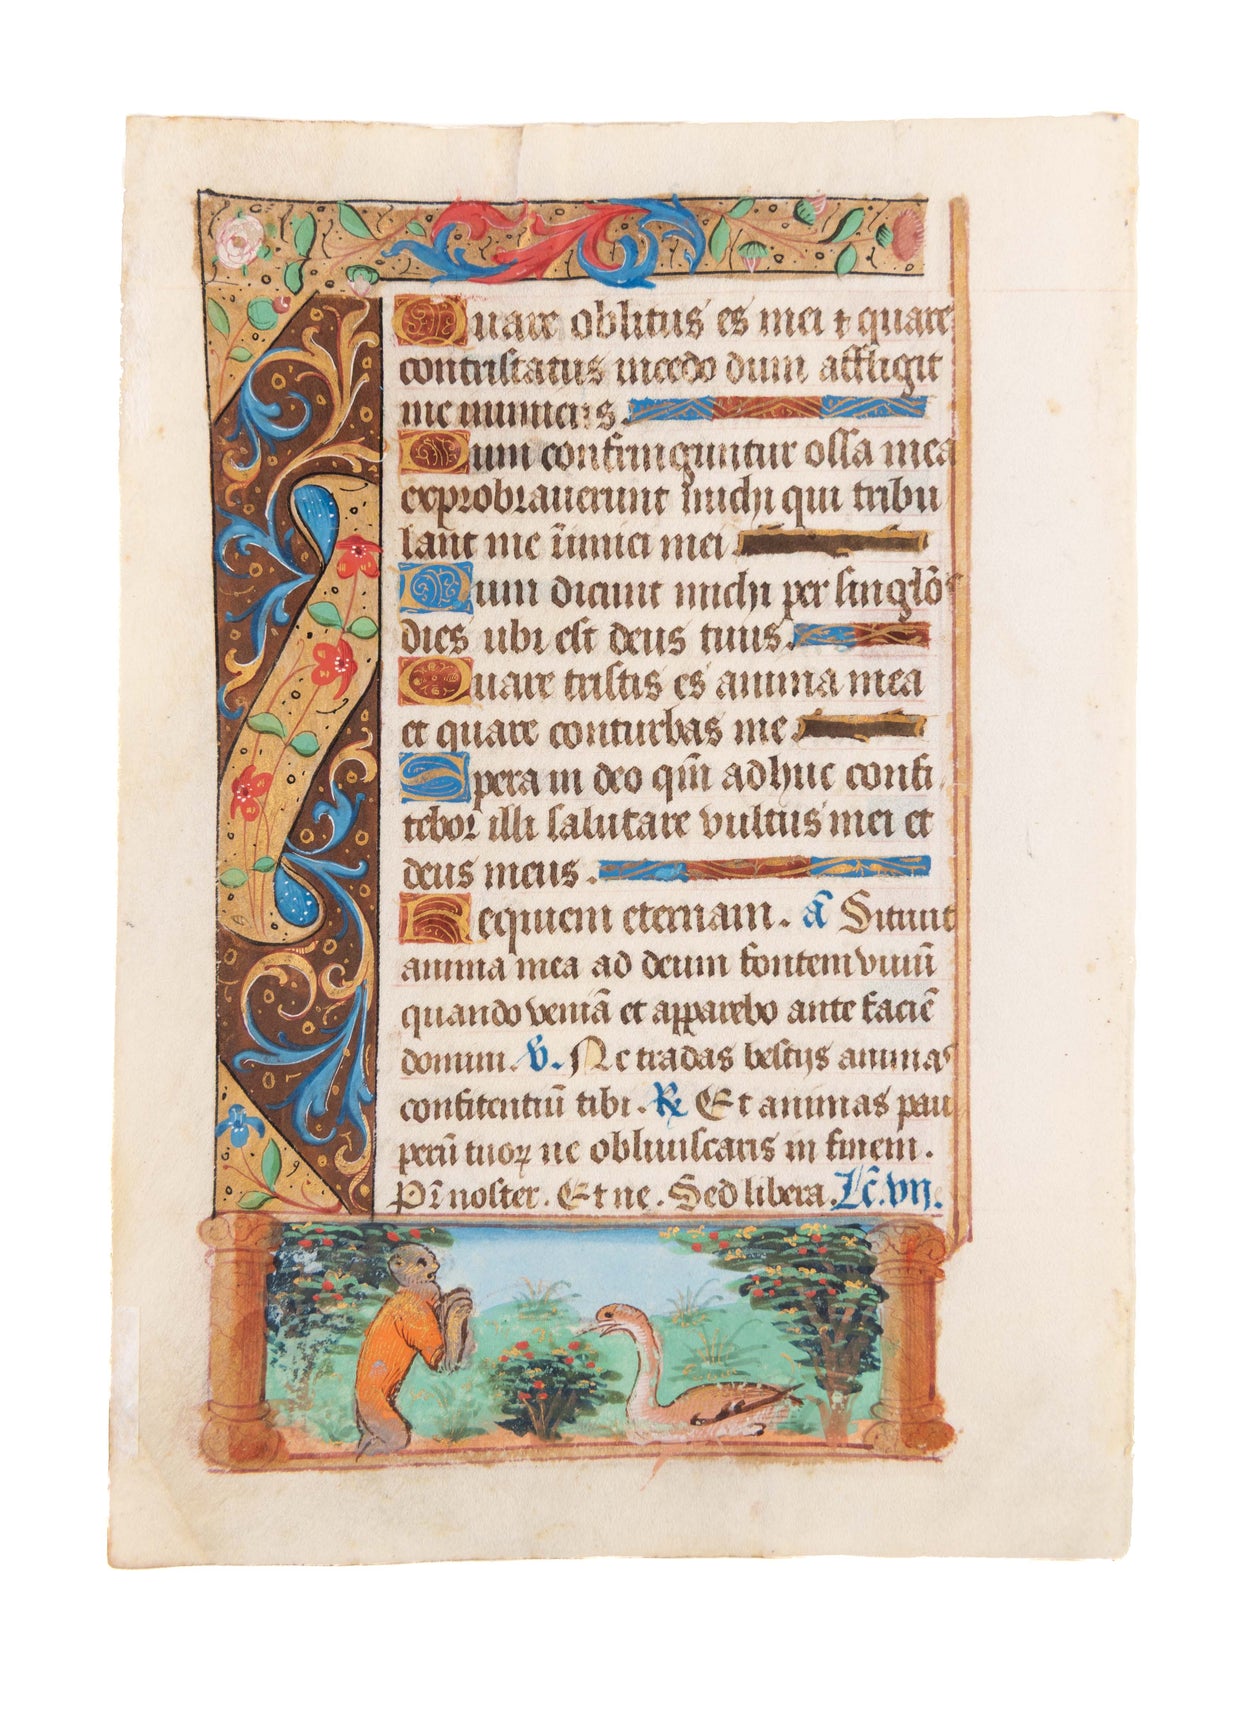 Quare oblitus es mei ⁊ quare
contristatus incedo dum affligit
me inimicus.
Dum confringuntur ossa mea
exprobraverunt michi qui tribu
lant me inimici mei
Dum dicunt michi per singlõs
dies ubi est deus tuus.
Quare tristis es anima mea
et quare conturbas me
Spera in deo qm̃ adhuc confi
tebor illi salutare vultus mei et
deus meus.
Requiem eternam. añ Sitiuit
anima mea ad deum fontem viuũ
quando veniã et apparebo ante faciẽ
domini. ℣. Ne tradas bestijs animas
confitentiũ tibi. ℟ Et animas pau
perũ tuoꝝ ne obliuiscaris in finem.
Pr̃ noster. Et ne. Sed libera. Lc̃. vij.